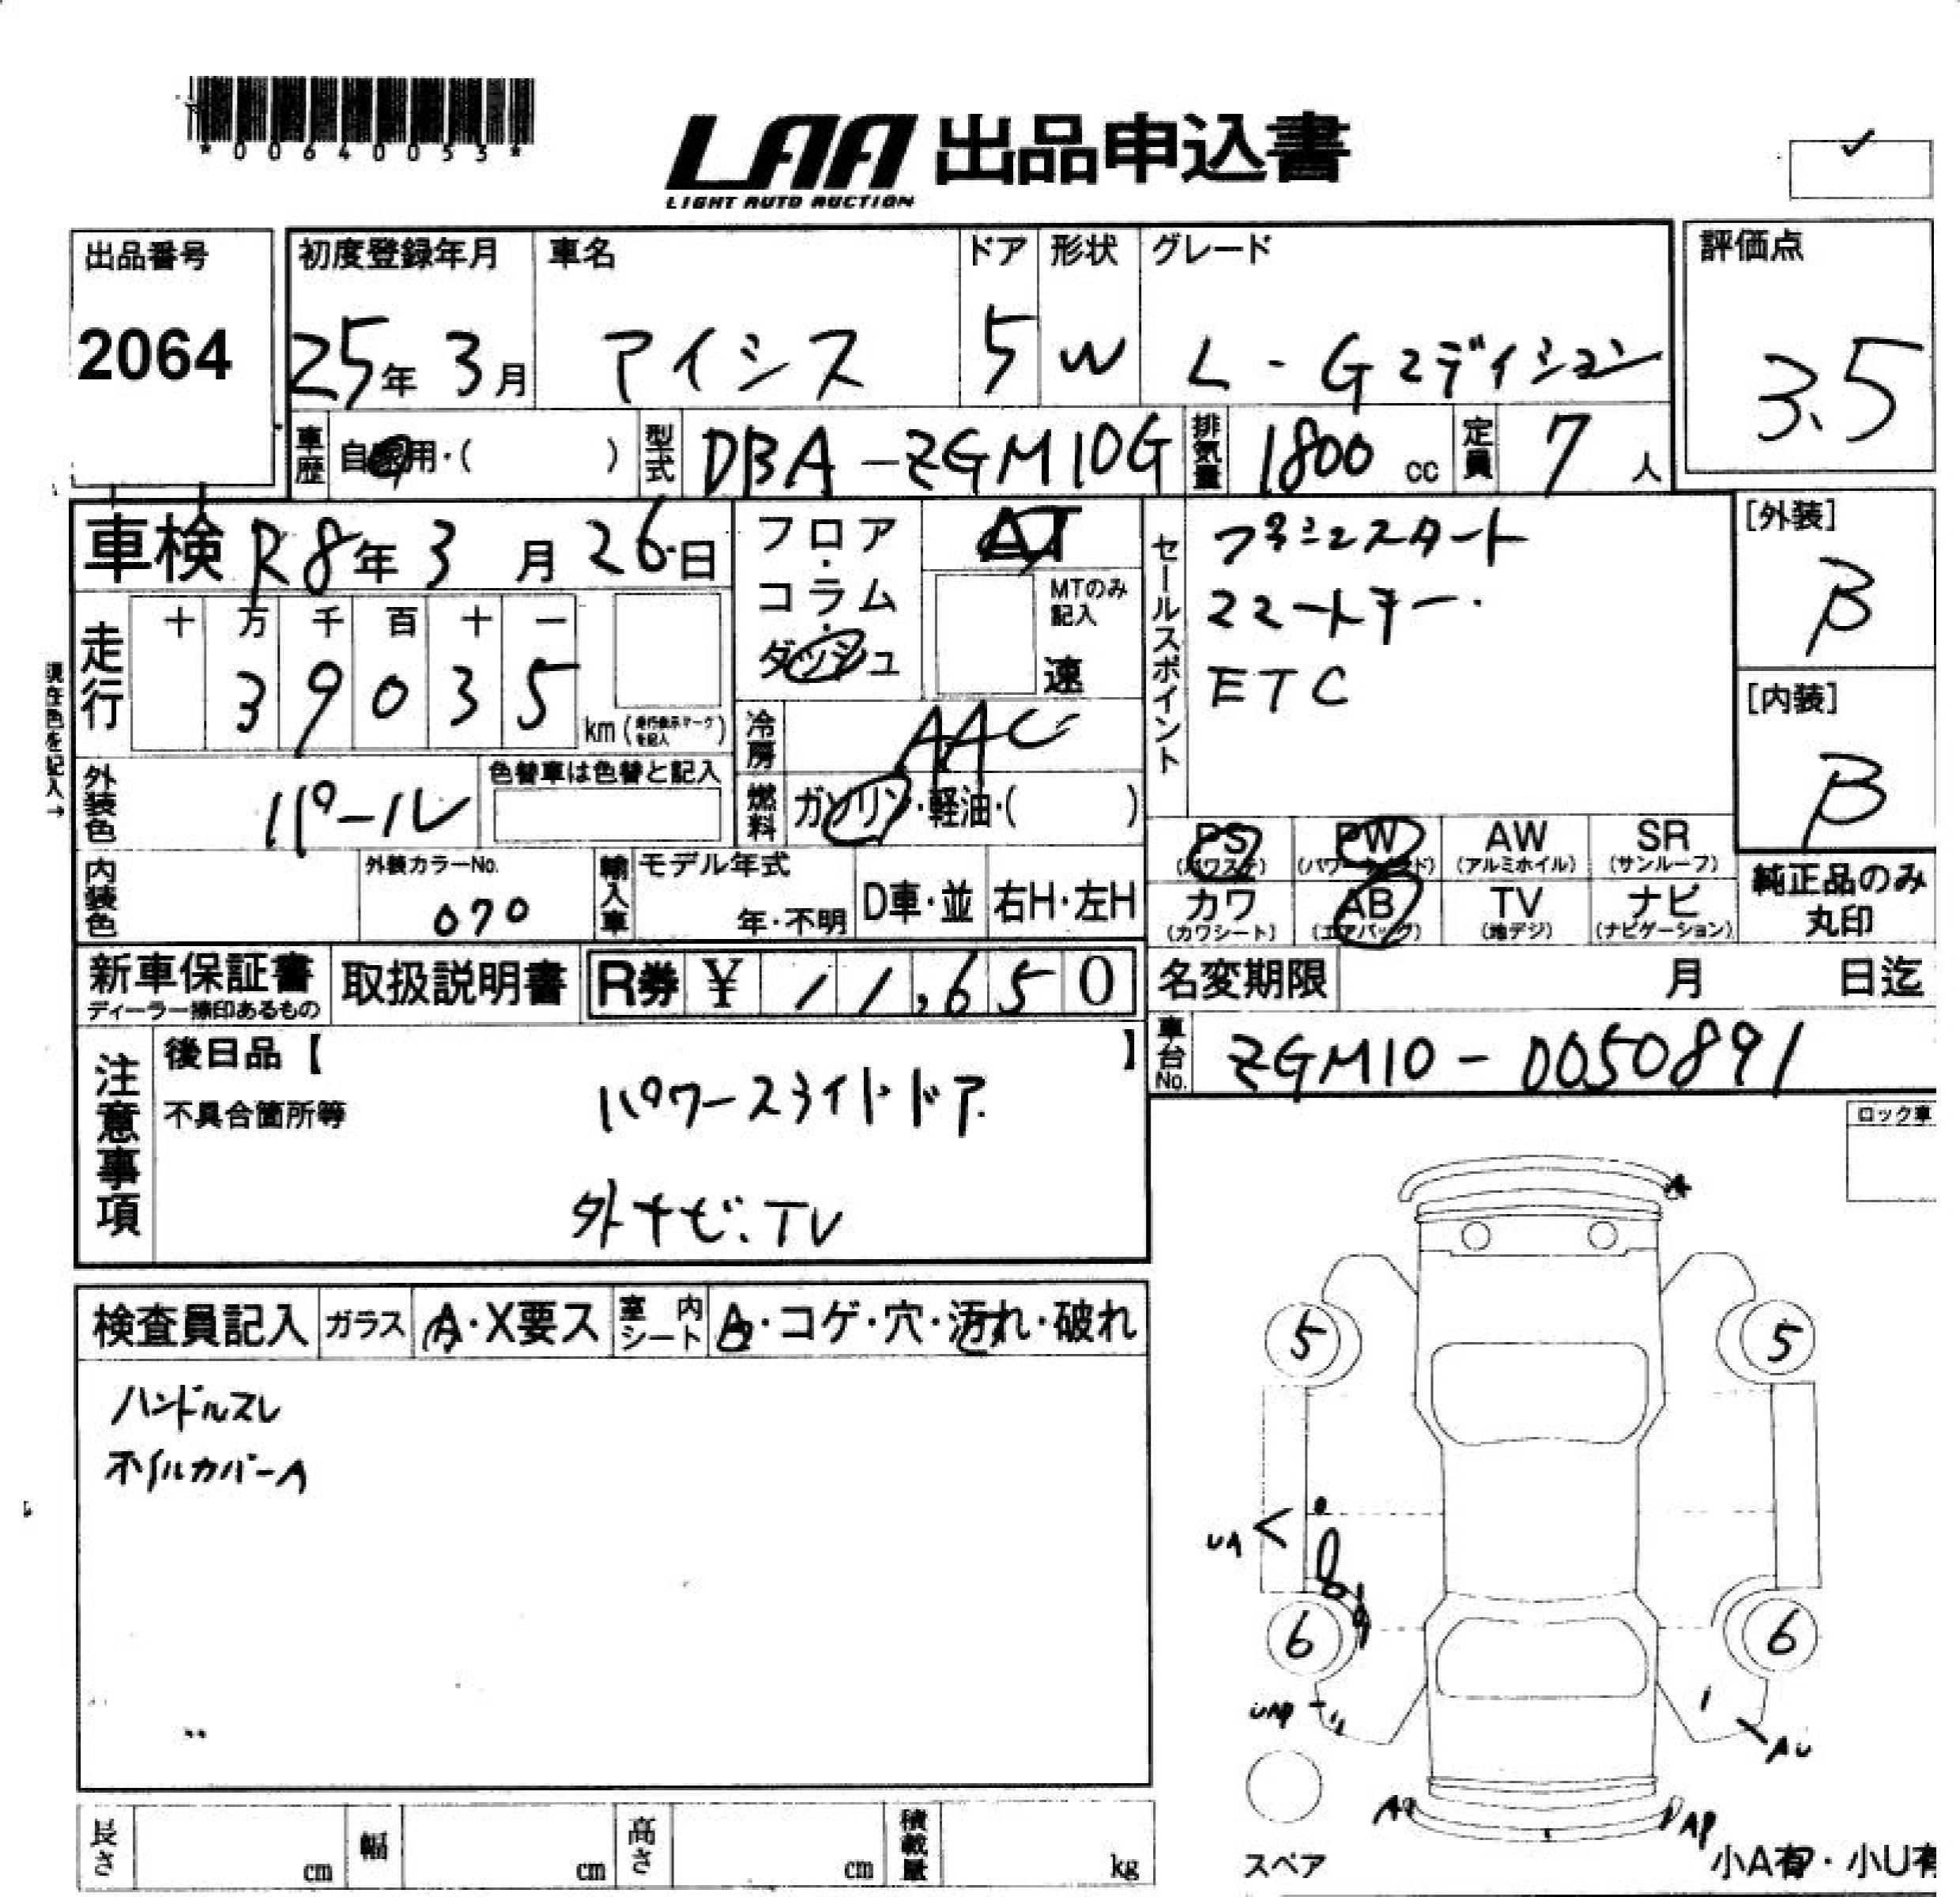 *00640053*
LAA 出品申込書
LIGHT AUTO AUCTION
出品番号 初度登録年月 車名 ドア 形状 グレード 評価点
2064 25年 3月 アイシス 5 W L-Gエディション 3.5
車歴 自家用・( ) 型式 DBA-ZGM10G 排気量 1800 cc 定員 7 人
車検 R8年 3 月 26日 フロア・コラム・ダッシュ AT セールスポイント プッシュスタート [外装] B
MTのみ記入 速 スマートキー.
走行 十 万 千 百 十 一 ETC
3 9 0 3 5 km (走行表示マークを記入) [内装] B
現在色を記入→
冷房 AAC
外装色 パール 色替車は色替と記入 燃料 ガソリン・軽油・( )
PS (パワステ) PW (パワーウィンド) AW (アルミホイル) SR (サンルーフ)
内装色 外装カラーNo. 070 輸入車 モデル年式 年・不明 D車・並 右H・左H
カワ (カワシート) AB (エアバッグ) TV (地デジ) ナビ (ナビゲーション) 純正品のみ丸印
新車保証書 ディーラー捺印あるもの 取扱説明書 R券 ¥ 11,650 名変期限 月 日迄
車台No. ZGM10-0050891
注意事項 後日品【 】
不具合箇所等 パワースライドドア.
外ナビ.TV
ロック車
A
検査員記入 ガラス A・X要ス 室内シート A・コゲ・穴・汚れ・破れ
ハンドルスレ
ホイルカバーA
5 5
UA
6 6
AU
AP
スペア
小A有・小U有
長さ cm 幅 cm 高さ cm 積載量 kg